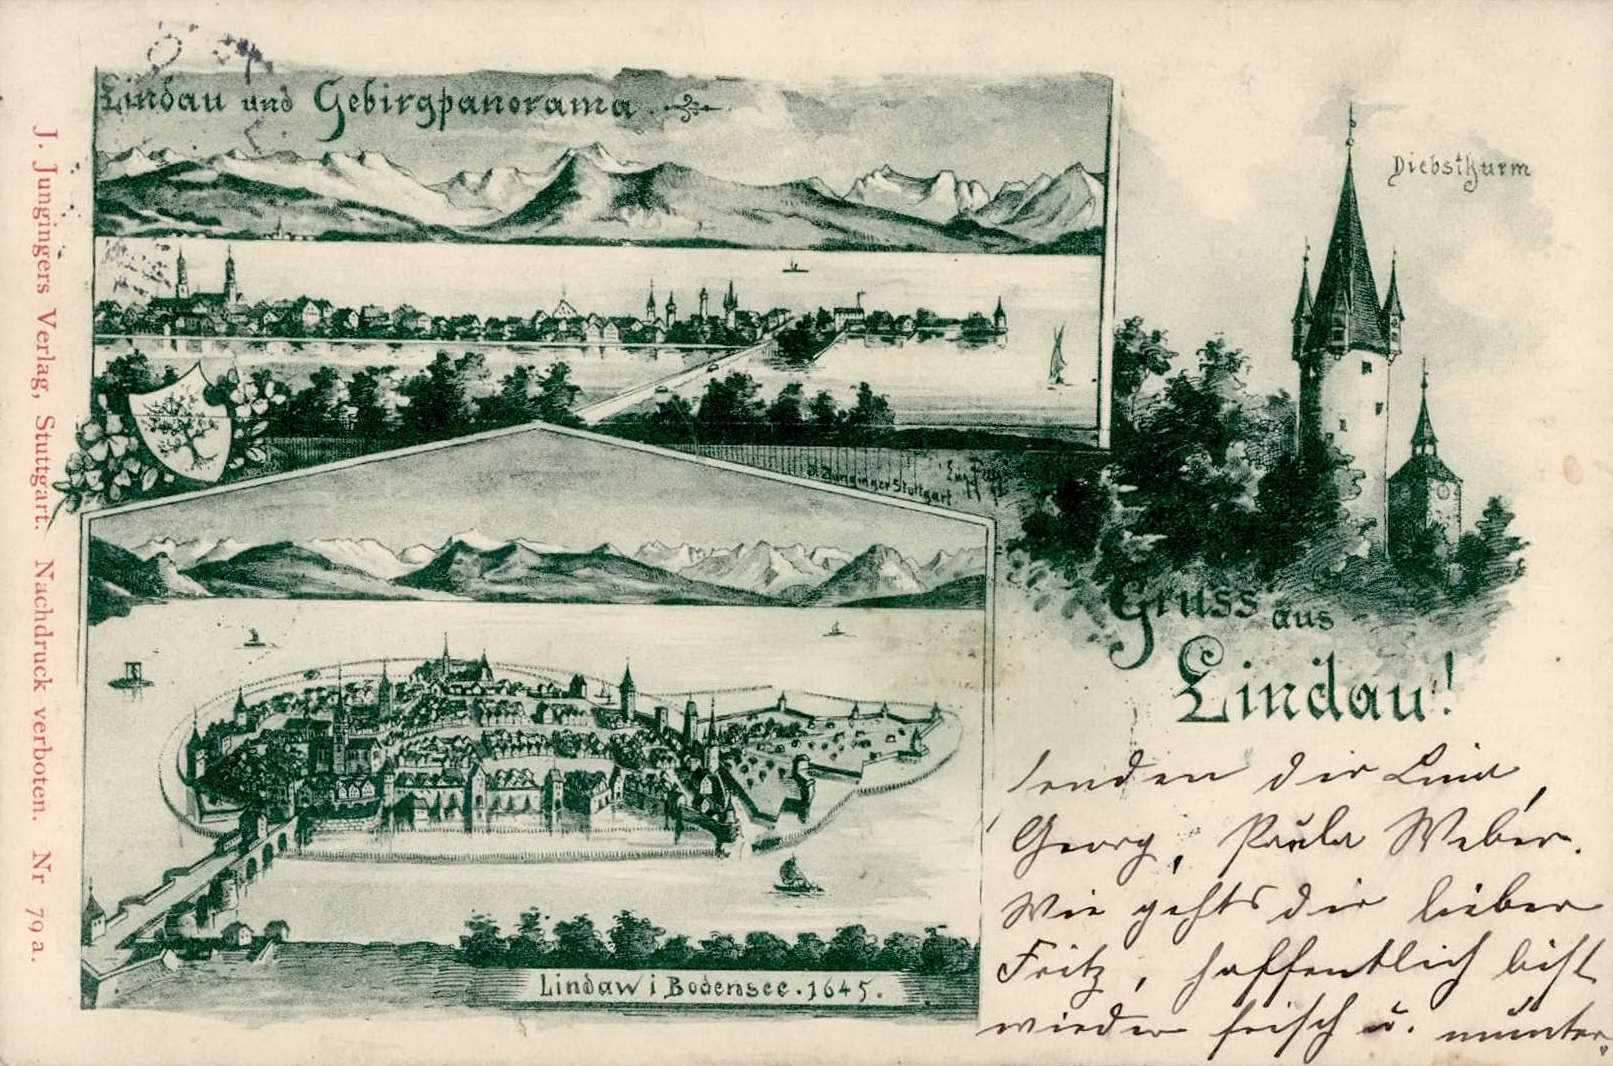 Lindau und Gebirgpanorama
Diebsthurm
J. Jungingers Verlag, Stuttgart. Nachdruck verboten. Nr 79 a.
J. Junginger Stuttgart
Gruss aus
Lindau!
senden dir
Georg, Paula Weber.
Wie gehts dir lieber
Fritz, hoffentlich bist
wieder frisch u. munter.
Lindaw i Bodensee. 1645.